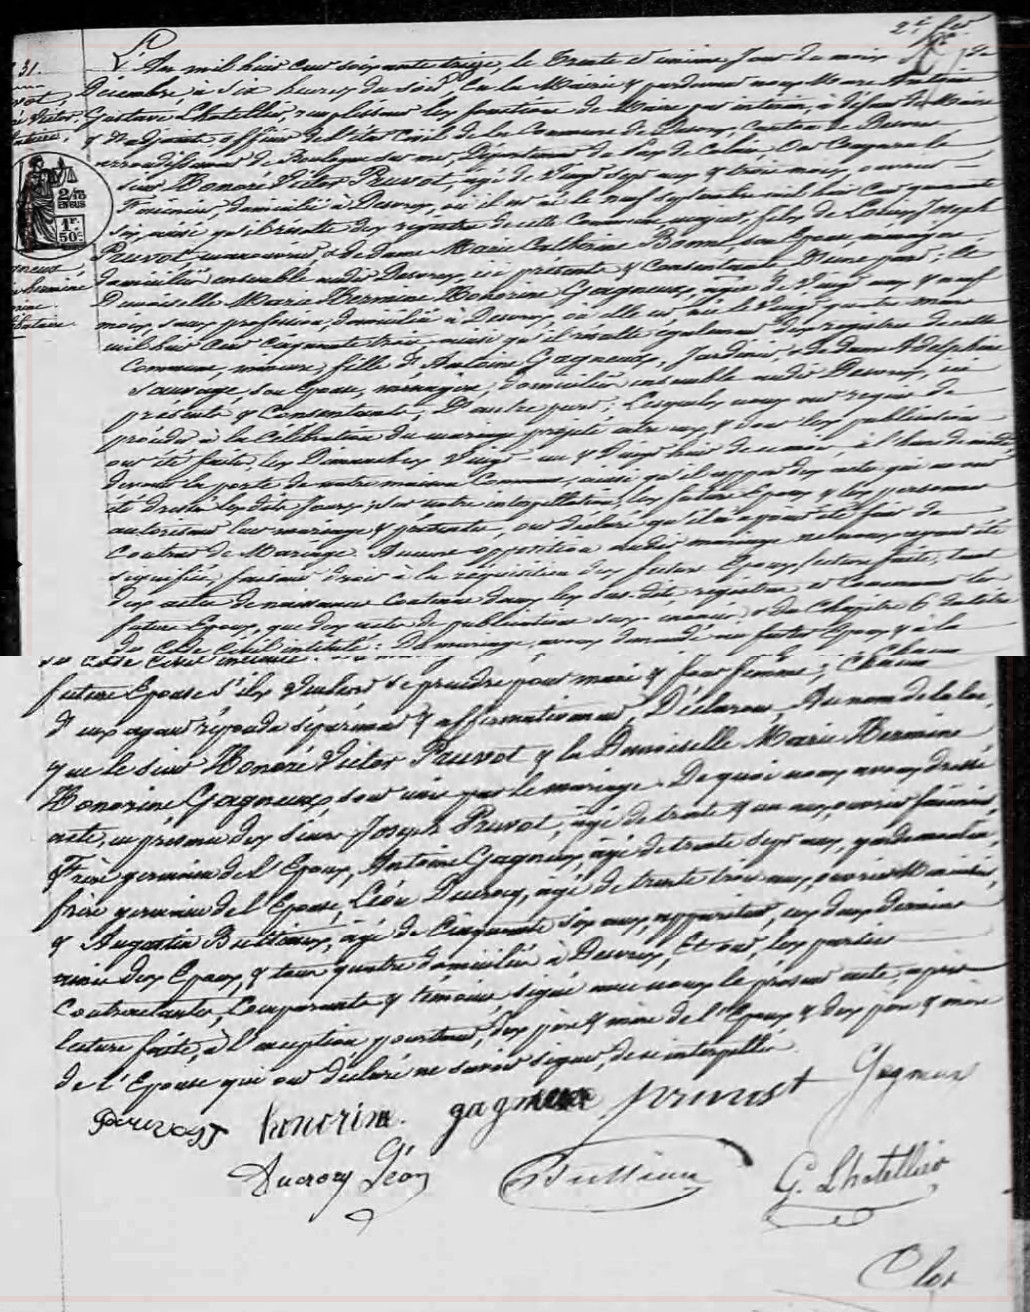 31.
2/10 EN SUS
1F. 50C
L'An mil huit cent soixante treize, le Trente et unième Jour du mois de
Décembre, à six heures du soir, En la Mairie & pardevant nous Marc Antoine
Gustave Lhotellier, remplissant les fonctions de Maire par intérim, à défaut de Maire
& d'adjoints officier de l'état civil de la Commune de Desvres, Canton de Desvres
arrondissement de Boulogne sur mer, Département du Pas de Calais. Ont Comparu le
sieur Honoré Victor Pruvot, âgé de Vingt sept ans & trois mois, ouvrier
Faïencier, domicilié à Desvres, où il est né le neuf septembre mil huit cent quarante
six, ainsi qu'il résulte des registres de cette Commune, majeur, fils de Louis Joseph
Pruvot, & de dame Marie Catherine son Epouse, ménagère
domiciliés ensemble audit Desvres, ici présents & Consentants D'une part; Et
Demoiselle Marie Hermine Honorine Gagneux, âgée de Vingt ans & neuf
mois, sans profession, domiciliée à Desvres, où elle est née le Vingt quatre mars
mil huit Cent Cinquante trois, ainsi qu'il résulte également des registres de cette
Commune, mineure, fille d'Antoine Gagneux, Jardinier, & de dame Adelphine
Sauvage, son Epouse, ménagère, domiciliés ensemble audit Desvres, ici
présents & Consentants, D'autre part; Lesquels nous ont requis de
procéder à la Célébration du mariage projeté entre eux & dont les publications
ont été faites les Dimanches Vingt un & Vingt huit de ce mois, à l'heure de midi,
devant la porte de notre maison Commune, ainsi qu'il appert des actes qui en ont
été dressés les dits jours; Sur notre interpellation, les futurs Epoux & les personnes
autorisant leur mariage & présentes, ont déclaré qu'il n'a point été fait de
Contrat de Mariage. Aucune opposition audit mariage ne nous ayant été
signifiée, faisant droit à la réquisition des futurs Epoux, lecture faite, tant
des actes de naissance contenus dans les sus-dits registres et concernant les
futurs Epoux, que des actes de publications sus énoncés & du Chapitre 6 du titre
du Code Civil intitulé: Du mariage, avons demandé au futur Epoux & à la
future Epouse s'ils veulent se prendre pour mari & pour femme; Chacun
d'eux ayant répondu séparément & affirmativement, Déclarons, Au nom de la loi,
que le sieur Honoré Victor Pruvot & la Demoiselle Marie Hermine
Honorine Gagneux, sont unis par le mariage. De quoi nous avons dressé
acte, en présence des sieurs Joseph Pruvot, âgé de trente & un ans, ouvrier faïencier,
Frère germain de l'Epoux, Antoine Gagneux, âgé de trente sept ans, garde moulin,
frère germain de l'Epouse, Léon Ducrocq, âgé de trente trois ans, ouvrier
& Augustin Bultiaux, âgé de Cinquante six ans, appariteur, ces deux derniers
amis des Epoux, & tous quatre domiciliés à Desvres, Et ont, les parties
Contractantes, Comparants & témoins, signé avec nous le présent acte, après
lecture faite, à l'exception pourtant, des père & mère de l'Epoux & des père & mère
de l'Epouse qui ont déclaré ne savoir signer, de ce interpellés.
pruvost honorine gagneux pruvost Gagneux
Ducrocq Léon Bultiaux G. Lhotellier